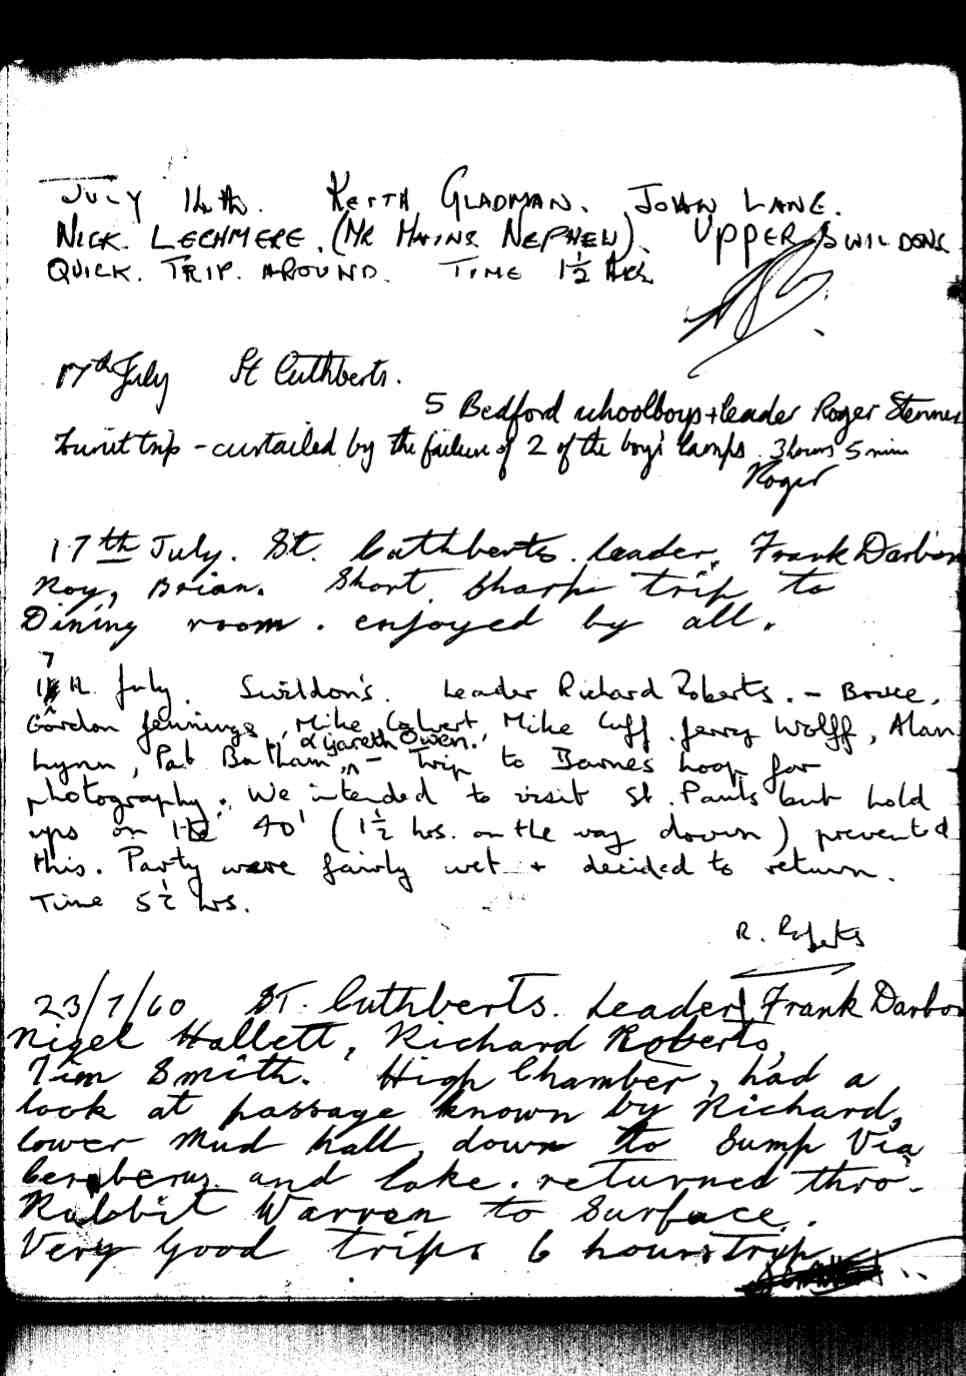 JULY 14th. KEITH GLADMAN. JOHN LANE.
NICK. LECHMERE. (MR HAINS NEPHEW). UPPER SWILDONS
QUICK. TRIP. AROUND. TIME 1½ HRS.
17th July St Cuthberts.
5 Bedford schoolboys + leader Roger Stenner
Tourist trip - curtailed by the failure of 2 of the boys lamps. 3 hours 5 min
Roger
17th July. St. Cuthberts. Leader, Frank Darbon
Roy, Brian. Short, sharp trip to
Dining room. enjoyed by all.
7
1 th. July. Swildon's. Leader Richard Roberts. - Bruce,
Gordon Jennings, Mike Calvert, Mike Cuff. Jerry Wolff, Alan
& Gareth Owen.
Lynn, Pat Batham, - Trip to Barnes Loop for
photography. We intended to visit St. Pauls but hold
ups on the 40' (1½ hrs. on the way down) prevented
this. Party were fairly wet + decided to return.
Time 5½ hrs.
R. Roberts
23/7/60 ST. Cuthberts. Leader, Frank Darbon
Nigel Hallett, Richard Roberts,
Tim Smith. High Chamber, had a
look at passage known by Richard,
lower Mud hall, down to Sump Via
Cerberus and lake. returned thro.
Rabbit Warren to Surface.
Very Good trips 6 hours trip